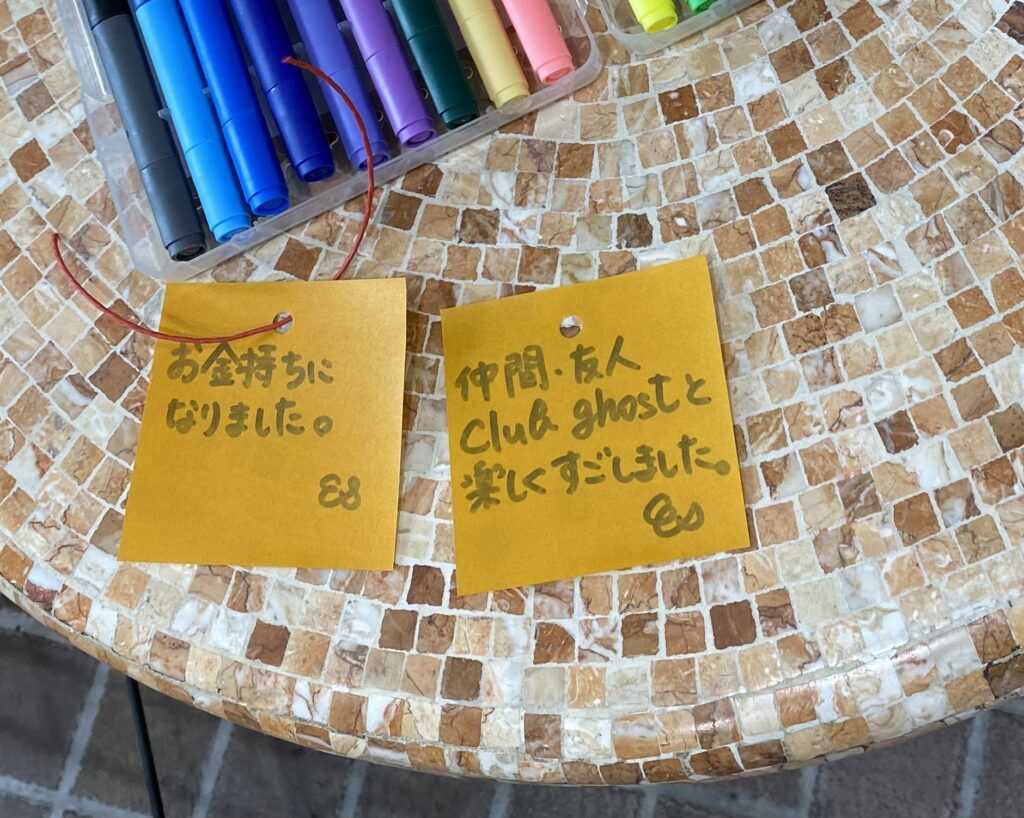 お金持ちに
なりました。
ES
仲間・友人
Club ghostと
楽しくすごしました。
Es